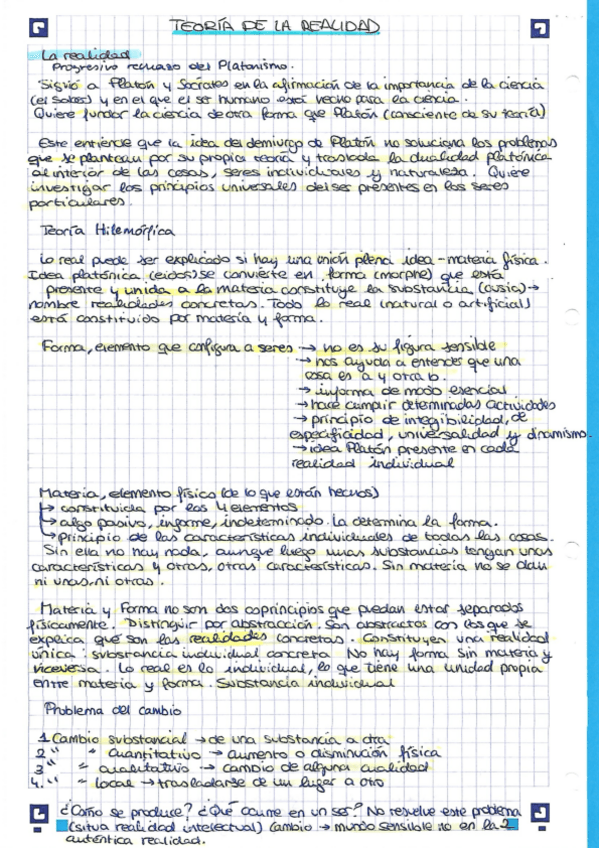 TEORÍA DE LA REALIDAD
La realidad
Progresivo rechazo del Platonismo.
Siguió a Platón y Sócrates en la afirmación de la importancia de la ciencia
(el saber) y en el que el ser humano está hecho para la ciencia.
Quiere fundar la ciencia de otra forma que Platón (consciente de su teoría)
Este entiende que la idea del demiurgo de Platón no soluciona los problemas
que se plantean por su propia teoría y traslada la dualidad platónica
al interior de las cosas, seres individuales y naturaleza. Quiere
investigar los principios universales del ser presentes en los seres
particulares.
Teoría Hilemórfica
Lo real puede ser explicado si hay una unión plena idea-materia física.
Idea platónica (eidos) se convierte en forma (morphe) que está
presente y unida a la materia constituye la substancia (ousia)→
nombre realidades concretas. Todo lo real (natural o artificial)
está constituido por materia y forma.
Forma, elemento que configura a seres → no es su figura sensible
→ nos ayuda a entender que una
cosa es a y otra b.
→ informa de modo esencial
→ hace cumplir determinadas actividades
→ principio de integibilidad, de
especificidad, universalidad y dinamismo.
→ idea Platón presente en cada
realidad individual
Materia, elemento físico (de lo que están hechos)
→ constituida por los 4 elementos
→ algo pasivo, informe, indeterminado. La determina la forma.
→ principio de las características individuales de todas las cosas.
Sin ella no hay nada, aunque luego unas substancias tengan unas
características y otras, otras características. Sin materia no se dan
ni unas, ni otras.
Materia y Forma no son dos coprincipios que puedan estar separados
físicamente. Distinguir por abstracción. Son abstractos con los que se
explica qué son las realidades concretas. Constituyen una realidad
única: substancia individual concreta. No hay forma sin materia y
viceversa. Lo real es lo individual, lo que tiene una unidad propia
entre materia y forma. Substancia individual
Problema del cambio
1. Cambio substancial → de una substancia a otra
2. " " cuantitativo → aumento o disminución física
3. " " cualitativo → cambio de alguna cualidad
4. " " local → trasladarse de un lugar a otro
¿Cómo se produce? ¿Qué ocurre en un ser? No resuelve este problema
(situa realidad intelectual) Cambio → mundo sensible no en la
auténtica realidad.